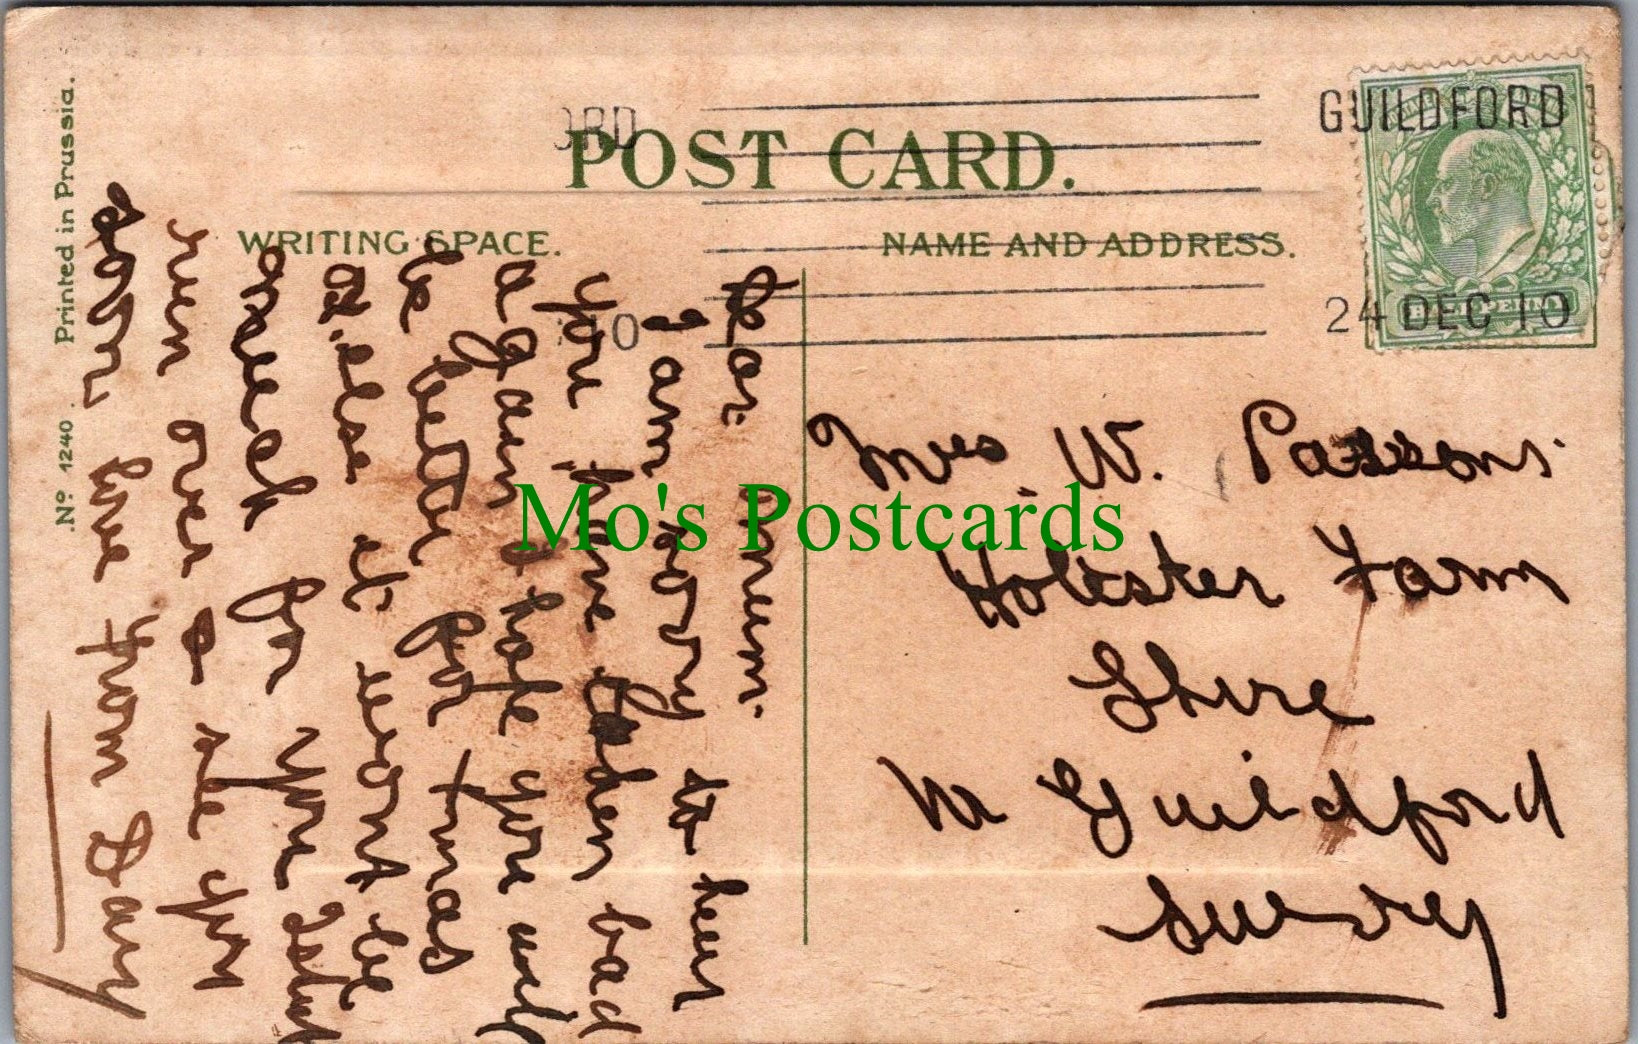 POST CARD.
WRITING SPACE.
NAME AND ADDRESS.
GUILDFORD
24 DEC 10
ORD
10
HALFPENNY
Nº 1240. Printed in Prussia.
Mo's Postcards
Mrs W. Parsons
Farm
Shire
Nr Guildford
Surrey
Dear mum.
I am sorry to hear
you have been bad
again I hope you will
be better for tmas
as. else it wont be
much for you I shall
run over & see you
soon love from Dany